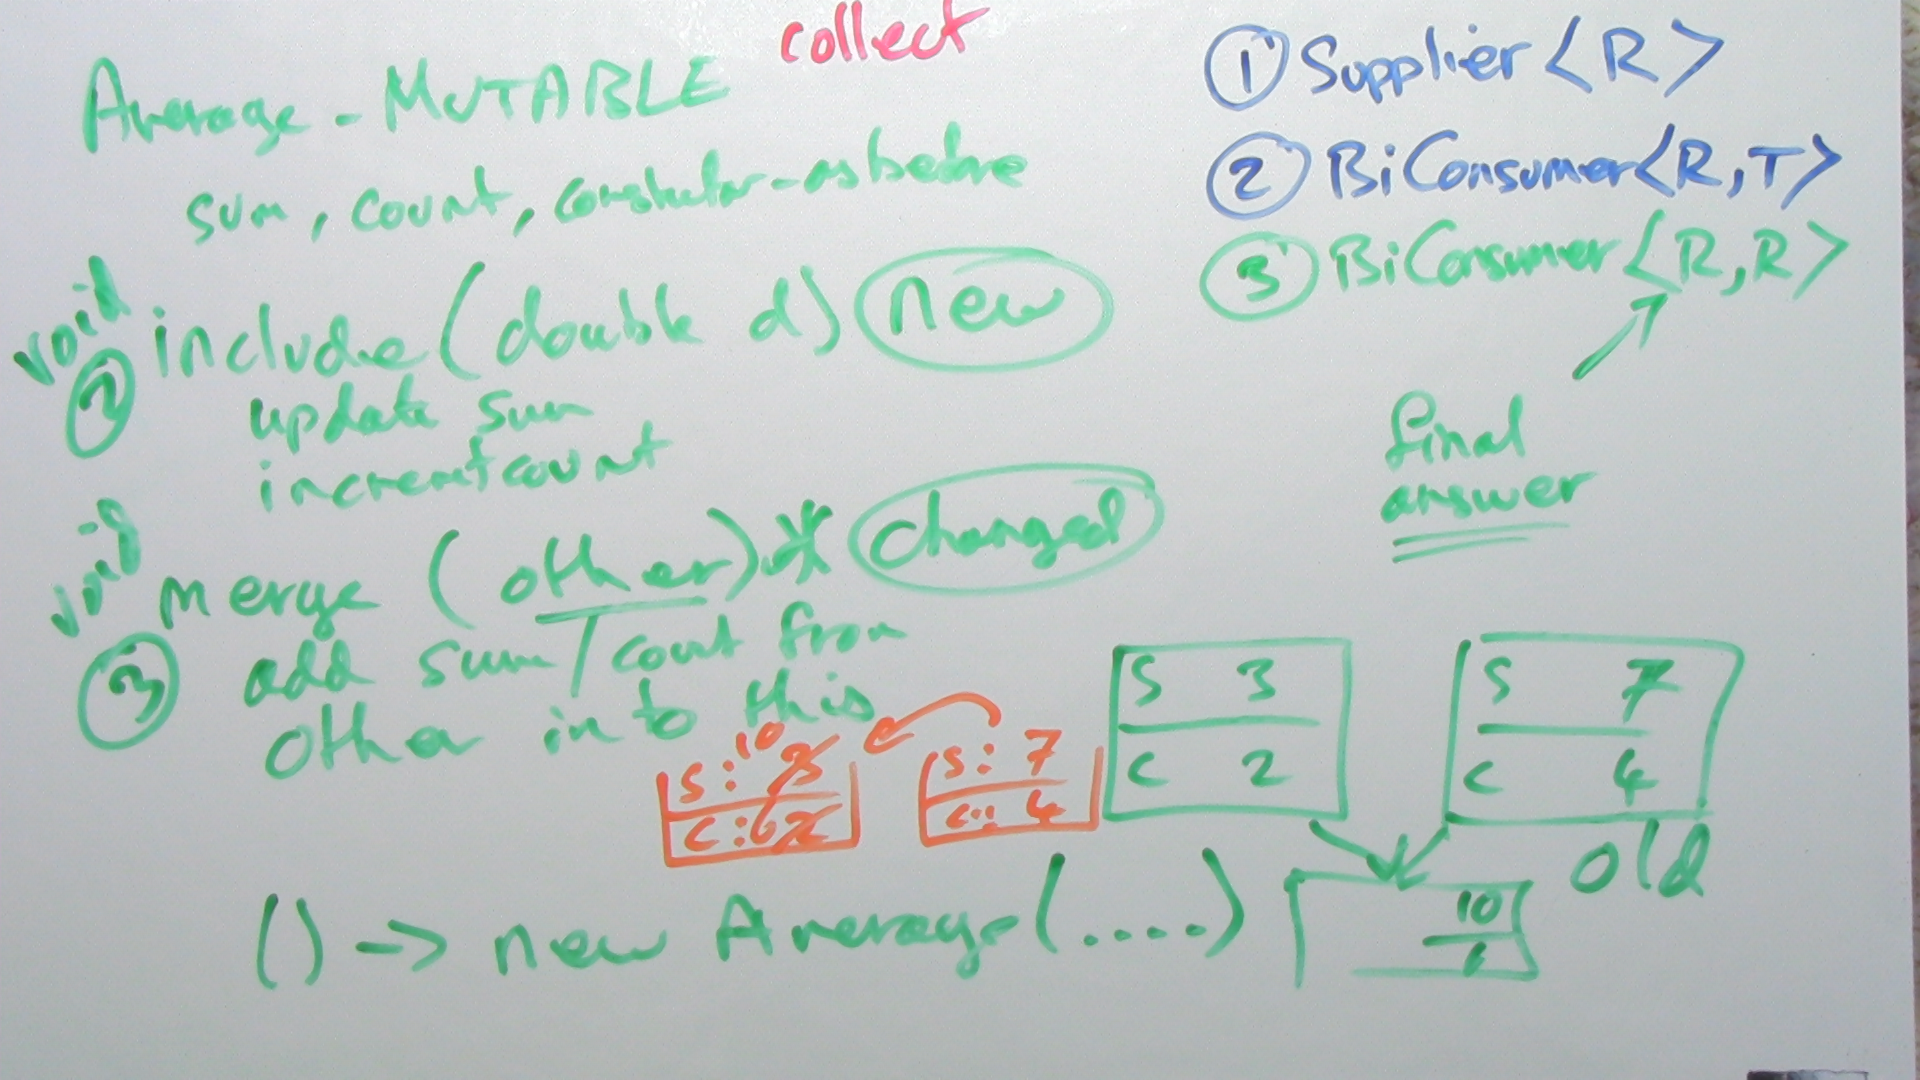 collect
Average - MUTABLE
sum, count, constructor - as before
void
② include (double d) new
update sum
increment count
void
③ merge (other) * changed
add sum/count from
other into this
① Supplier <R>
② BiConsumer <R, T>
③ BiConsumer <R, R>
final
answer
S: 3 10
C: 2 6
S: 7
C: 4
S 3
C 2
S 7
C 4
old
10
6
() -> new Average (....)